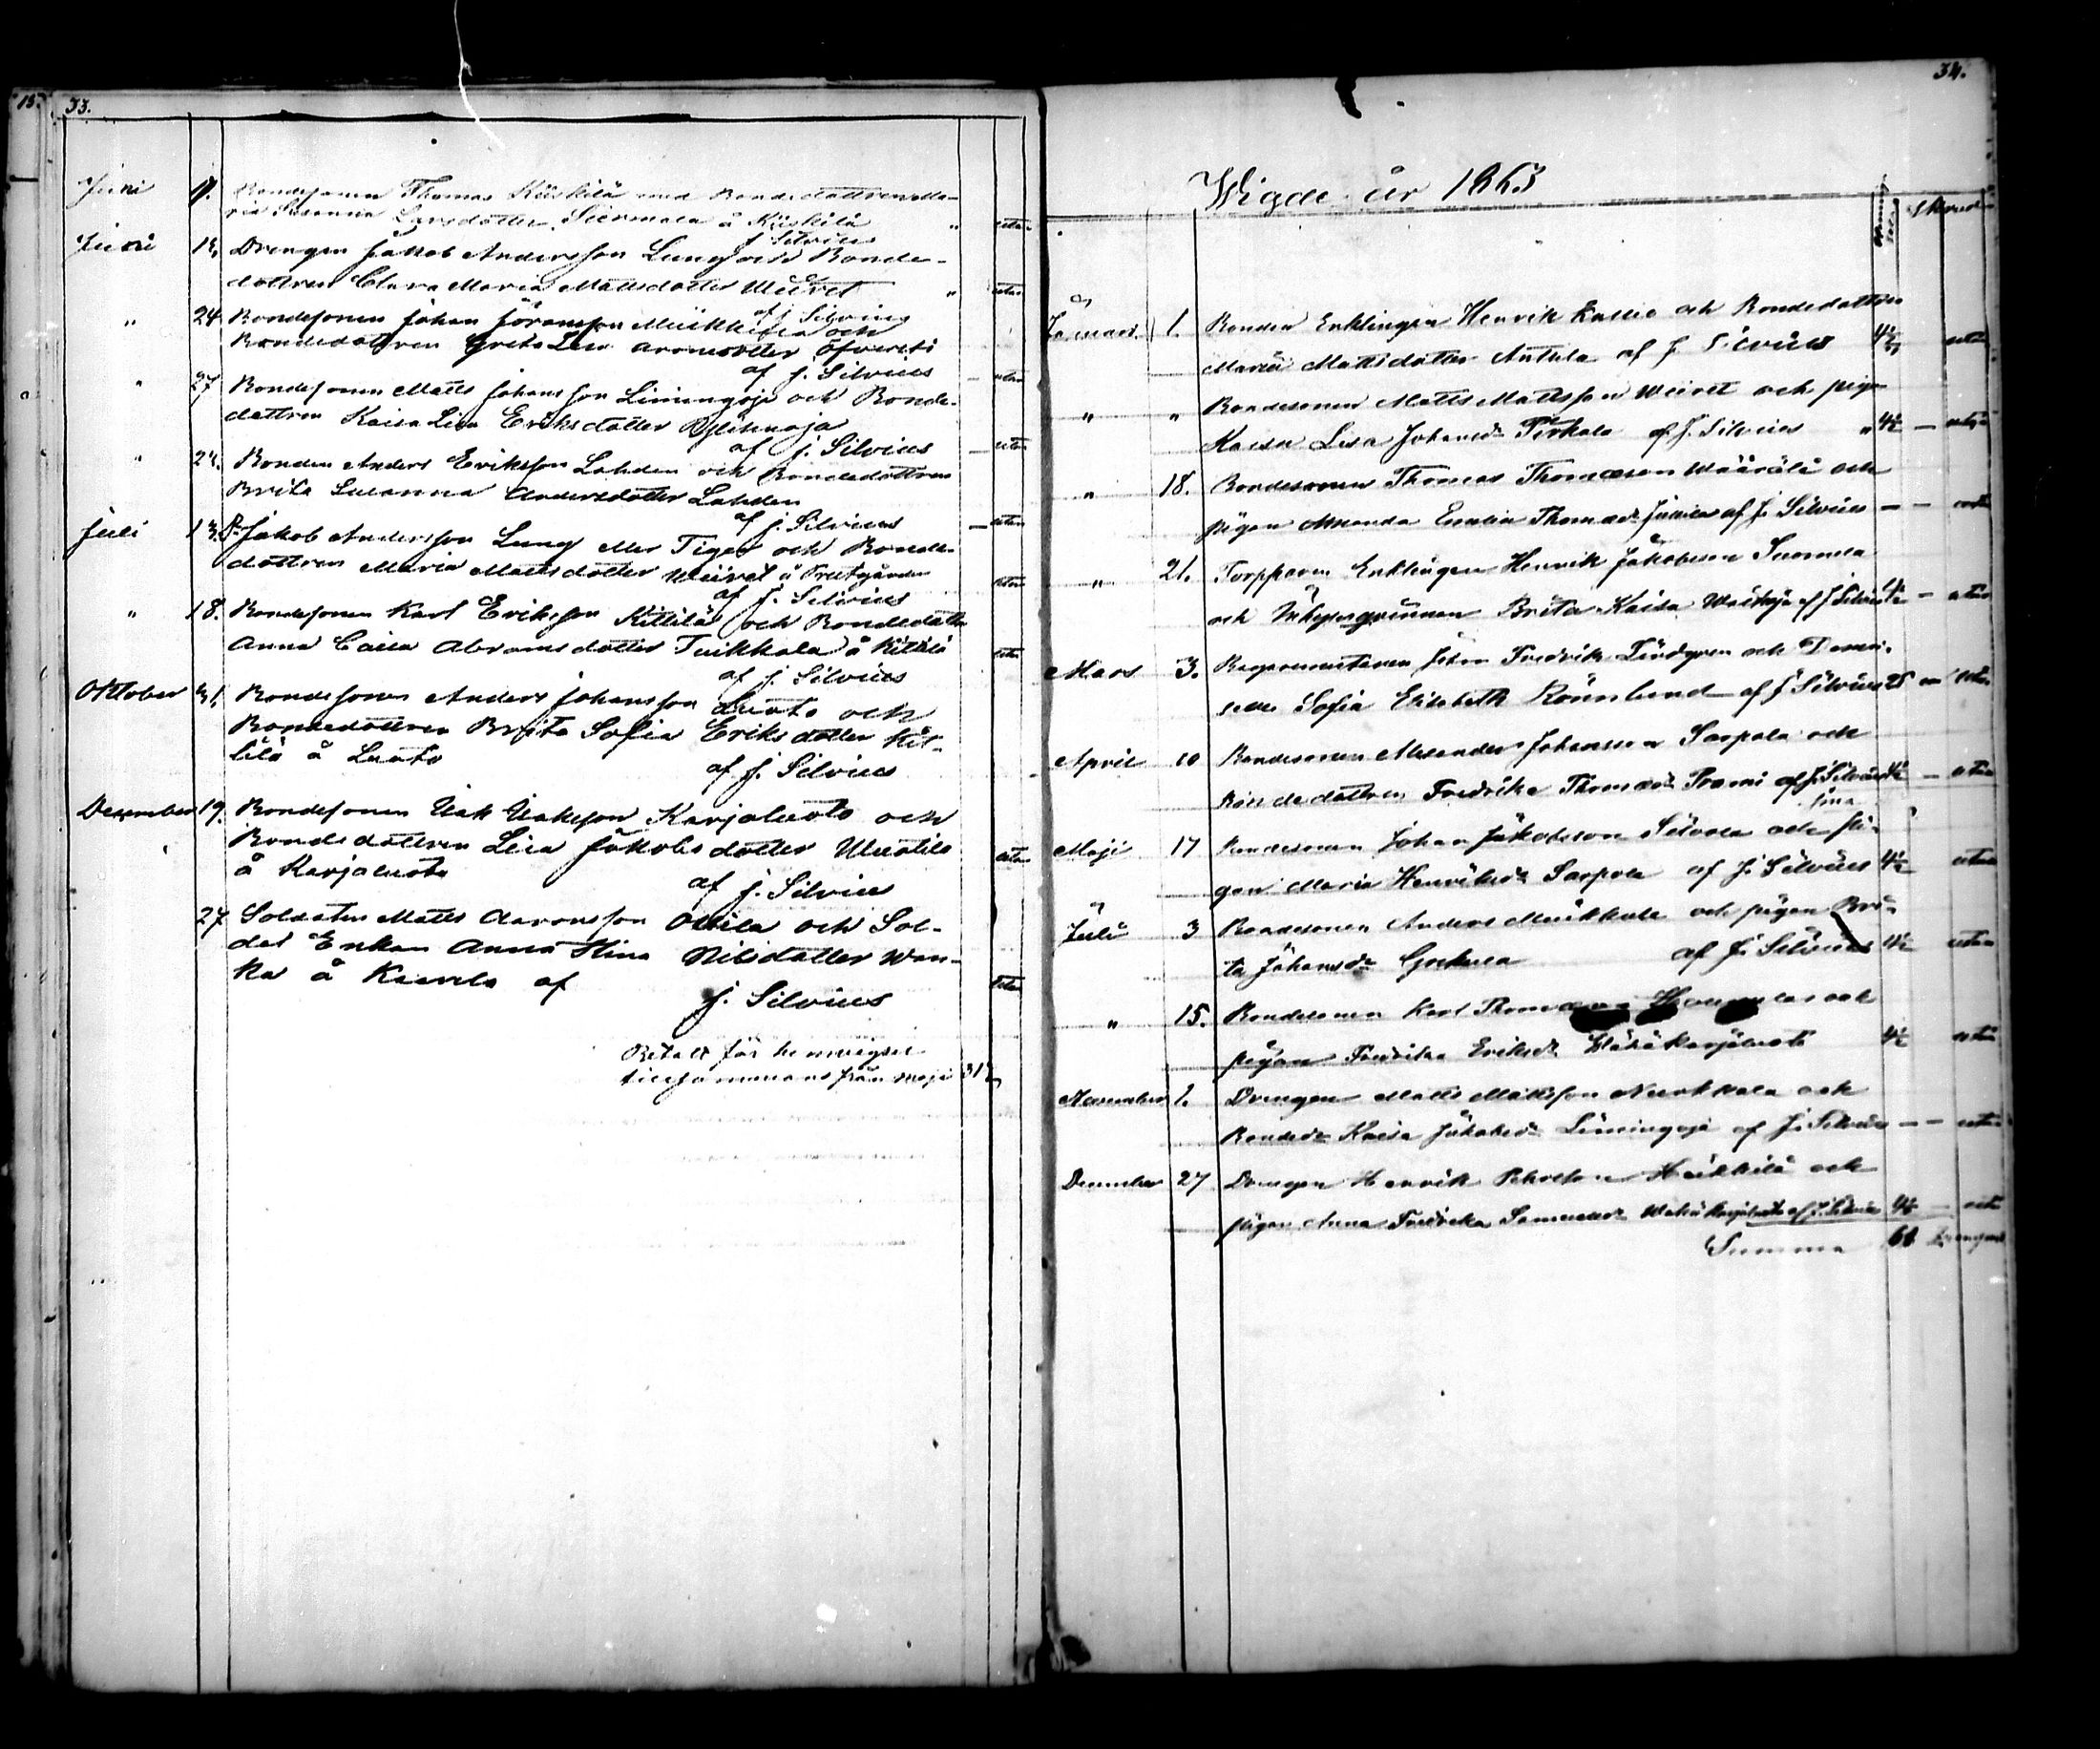 33.
Juni 17. Bondesonen Thomas Kiiskilä med Bondedottren Ma-
ria Susanna Larsdotter Siermala å Kiiskilä " utan
J. Silvius
Juni 18. Drengen Jakob Andersson Lung och Bonde-
dottren Clara Maria Mattsdotter Wiiret " utan
af J. Silvius
" 24 Bondesonen Johan Jöransson Miikkila och
Bondedottren Greta Lisa Aronsdotter Öfversti
af J. Silvius — utan
" 27 Bondesonen Matts Johansson Limingoja och Bonde-
dottren Kaisa Lisa Eriksdotter
af J. Silvius — utan
" 24. Bonden Anders Eriksson Lahden och Bondedottren
Brita Susanna Andersdotter Lahden
af J. Silvius — utan
Juli 13. Jakob Andersson Lung eller Tiger och Bonde-
dottren Maria Mattsdotter Wiiret å Prestgården utan
af J. Silvius
" 18. Bondesonen Karl Eriksson Kittilä och Bondedottr
Anna Caisa Abramsdotter Tuikkala å Kittilä utan
af J. Silvius
Oktober 31. Bondesonen Anders Johansson Luoto och
Bondedottren Brita Sofia Eriksdotter Kit-
tilä å Luoto af J. Silvius
December 19. Bondesonen Isak Isaksson Karjaluoto och
Bondedottren Lisa Jakobsdotter Uusitalo utan
å Karjaluoto
af J. Silvius
27 Soldaten Matts Aaronsson Ollila och Sol-
dat Enkan Anna Stina Nilsdotter Wan-
ka å af utan
J. Silvius
Betalt för hemvigsel
tillsammans från Maji 31½
34.
Wigde år 1863
Januari 1. Bonden Enklingen Henrik och Bondedottren
Maria Mattsdotter Anttila af J. Silvius 4½ utan
" " Bondesonen Matts Mattsson Wiiret och pigan
Kaisa Lisa Johansdr Pirkola af J. Silvius " 4½ — utan
" 18. Bondesonen Thomas Thomasson Määrälä och
pigan Amanda Thomasdr Junila af J. Silvius — — utan
" 21. Torpparen Enklingen Henrik Jakobsson Suomela
och Inhysesqvinnan Brita Kaisa af J. Silvius 4½ — utan
Mars 3. Johan Fredrik Lindgren och Demoi-
selle Sofia Elisabeth Rönnlund af J. Silvius 25 — utan
April 10 Bondesonen Alexander Johansson Saspola och
Bondedottren Fredrika Thomasdr Prami af J. Silvius 4½ — utan
Maji 17 Bondesonen Johan Jakobsson Silvola och pi-
gan Maria Henriksdr Saspola af J. Silvius 4½ utan
Juli 3 Bondesonen Anders Miikkola och pigan Bri-
ta Johansdr af J. Silvius 4½ utan
" 15. Bondesonen Karl Thomasson och
pigan Fredrika Eriksdr Wähäkarjaluoto 4½ utan
November 1. Drengen Matts Mattsson Nuokkala och
Bondedr Kaisa Jakobsdr Limingoja af J. Silvius — — utan
December 27 Drengen Henrik Heikkilä och
pigan Anna Fredrika Samuelsdr Wähäkarjaluoto af J. Silvius 4½ — utan
Summa 61